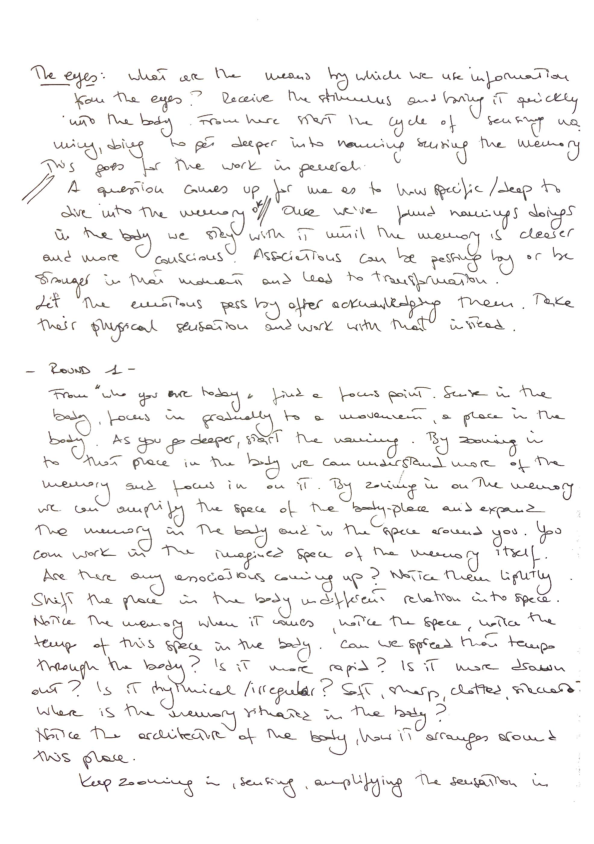 The eyes: what are the means by which we use information
from the eyes? Receive the stimulus and bring it quickly
into the body. From here start the cycle of sensing na
ming, doing to get deeper into naming sensing the memory
This goes for the work in general.
// A question comes up for me as to how specific/deep to
dive into the memory // Once we've found namings doings
in the body we stay with it until the memory is clearer
and more conscious. Associations can be passing by or be
stronger in that moment and lead to transformation.
Let the emotions pass by after acknowledging them. Take
their physical sensation and work with that instead.
- ROUND 1 -
From "who you are today" find a focus point. Sense in the
body, focus in gradually to a movement, a place in the
body. As you go deeper, start the naming. By zooming in
to that place in the body we can understand more of the
memory and focus in on it. By zoning in on the memory
we can amplify the space of the body-place and expand
the memory in the body and in the space around you. You
can work in the imagined space of the memory itself.
Are there any associations coming up? Notice them lightly.
Shift the place in the body in different relation into space.
Notice the memory when it comes, notice the space, notice the
tempo of this space in the body. Can we spread that tempo
through the body? Is it more rapid? Is it more drawn
out? Is it rhythmical/irregular? Soft, sharp, clotted, staccato.
Where is the memory situated in the body?
Notice the architecture of the body, how it arranges around
this place.
Keep zooming in, sensing, amplifying the sensation in